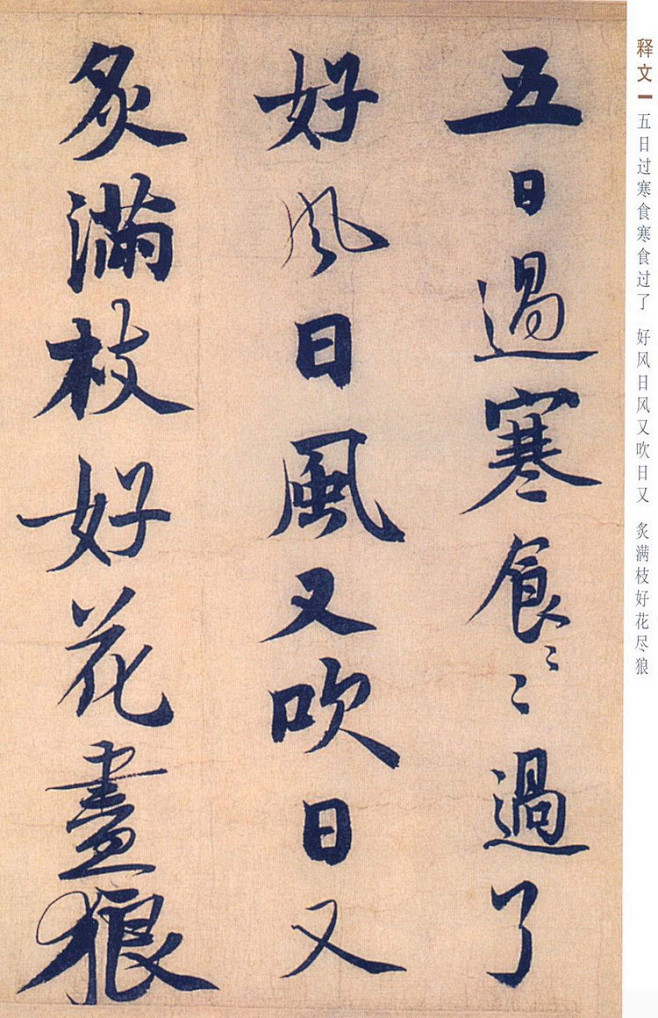 释文 五日过寒食寒食过了 好风日风又吹日又 炙满枝好花尽狼
五日過寒食〻〻過了
好风日風又吹日又
炙滿枝好花盡狼